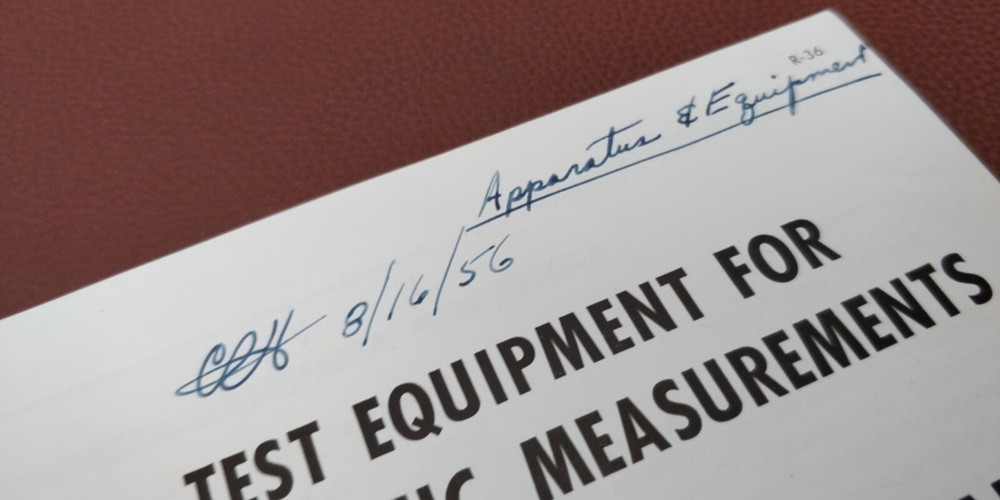 R-36
Apparatus & Equipment
8/16/56
TEST EQUIPMENT FOR
MEASUREMENTS